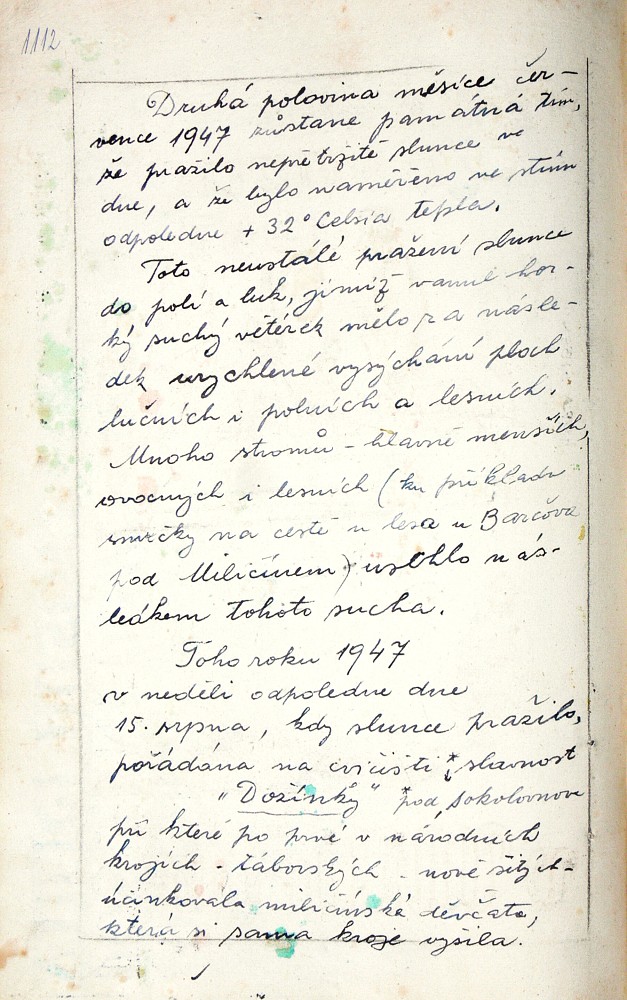 1112
Druhá polovina měsíce čer-
vence 1947 zůstane památná tím,
že pražilo nepřetržitě slunce ve
dne, a že bylo naměřeno ve stínu
odpoledne + 32° Celsia tepla.
Toto neustálé pražení slunce
do polí a luk, jimiž vanul hor-
ký suchý větérek mělo za násle-
dek urychlené vysýchání ploch
lučních i polních a lesních.
Mnoho stromů - hlavně menších,
ovocných i lesních (ku příkladu
smrčky na cestě u lesa u Barčova
pod Miličínem) uschlo násl-
ledkem tohoto sucha.
Toho roku 1947
v neděli odpoledne dne
15. srpna, kdy slunce pražilo,
pořádána na cvičišti * slavnost
"Dožínky" * pod sokolovnou
při které po prvé v národních
krojích - táborských - nově šitých -
účinkovala miličínská děvčata,
která si sama kroje vyšila.